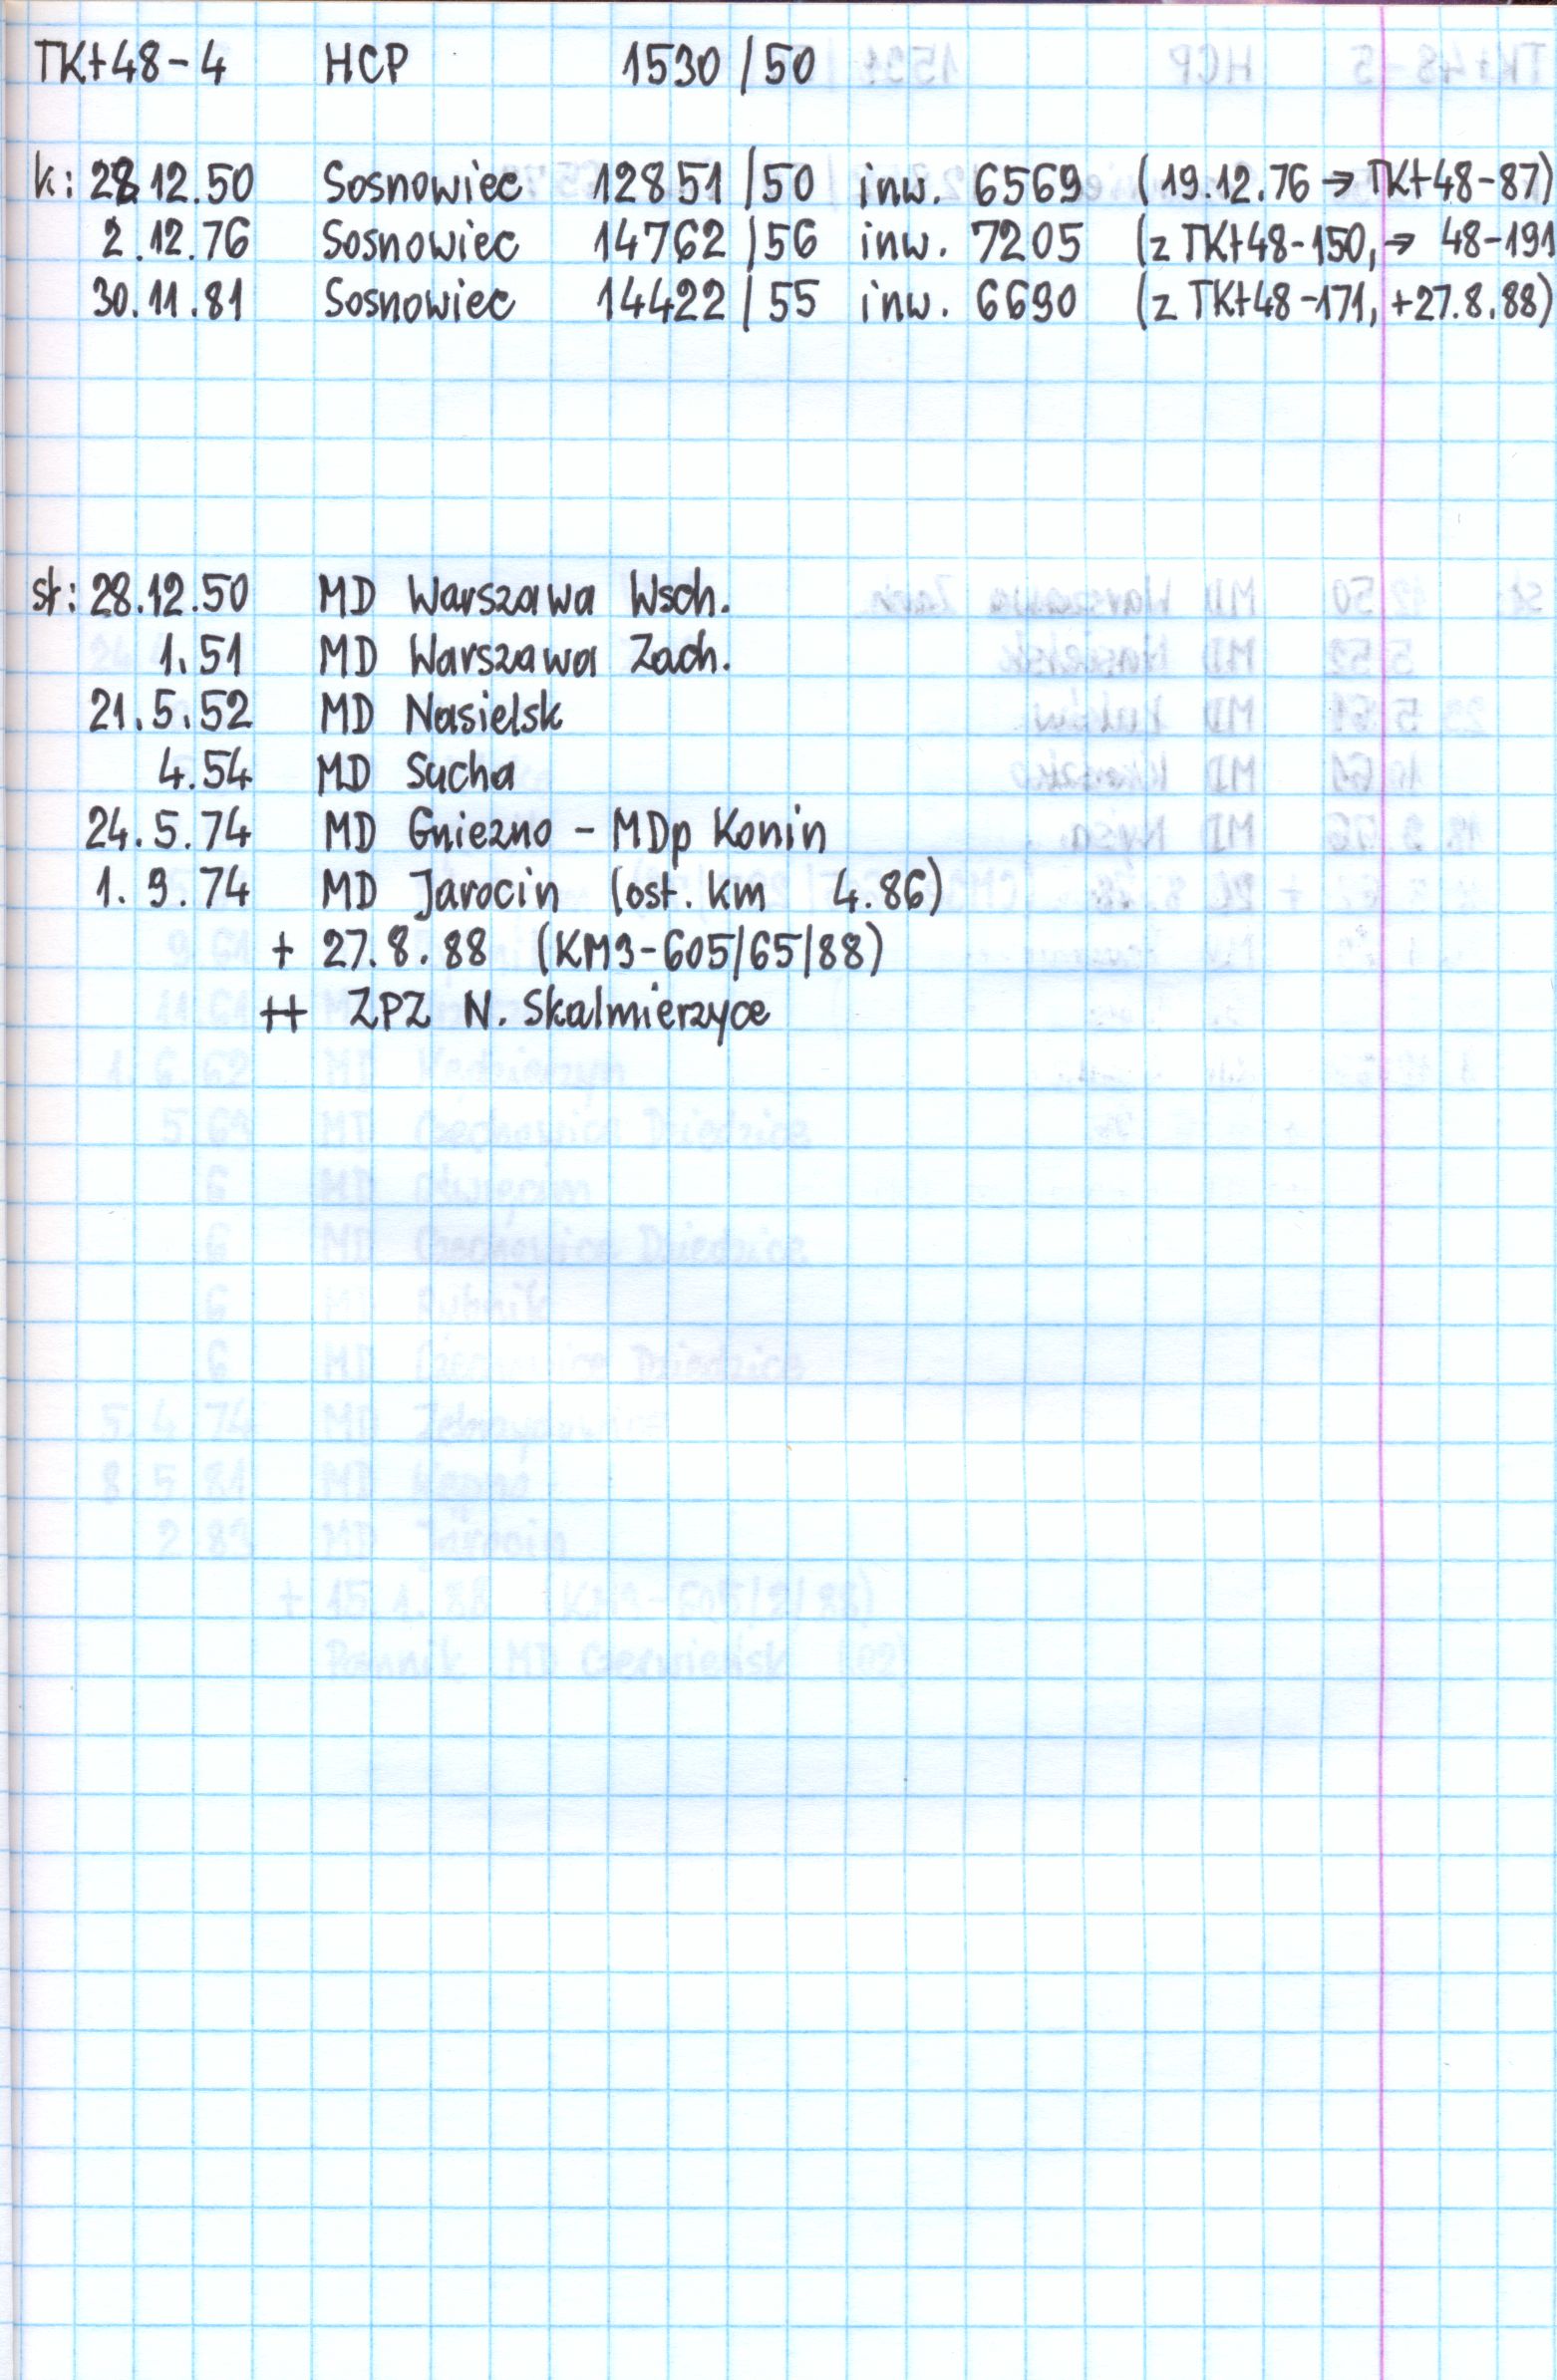 TKt48-4 HCP 1530/50
k: 28.12.50 Sosnowiec 12851/50 inw. 6569 (19.12.76 → TKt48-87)
2.12.76 Sosnowiec 14762/56 inw. 7205 (z TKt48-150, → 48-191
30.11.81 Sosnowiec 14422/55 inw. 6690 (z TKt48-171, +27.8.88)
st: 28.12.50 MD Warszawa Wsch.
1.51 MD Warszawa Zach.
21.5.52 MD Nasielsk
4.54 MD Sucha
24.5.74 MD Gniezno - MDp Konin
1.9.74 MD Jarocin (ost. km 4.86)
+ 27.8.88 (KM9-605/65/88)
++ ZPZ N. Skalmierzyce